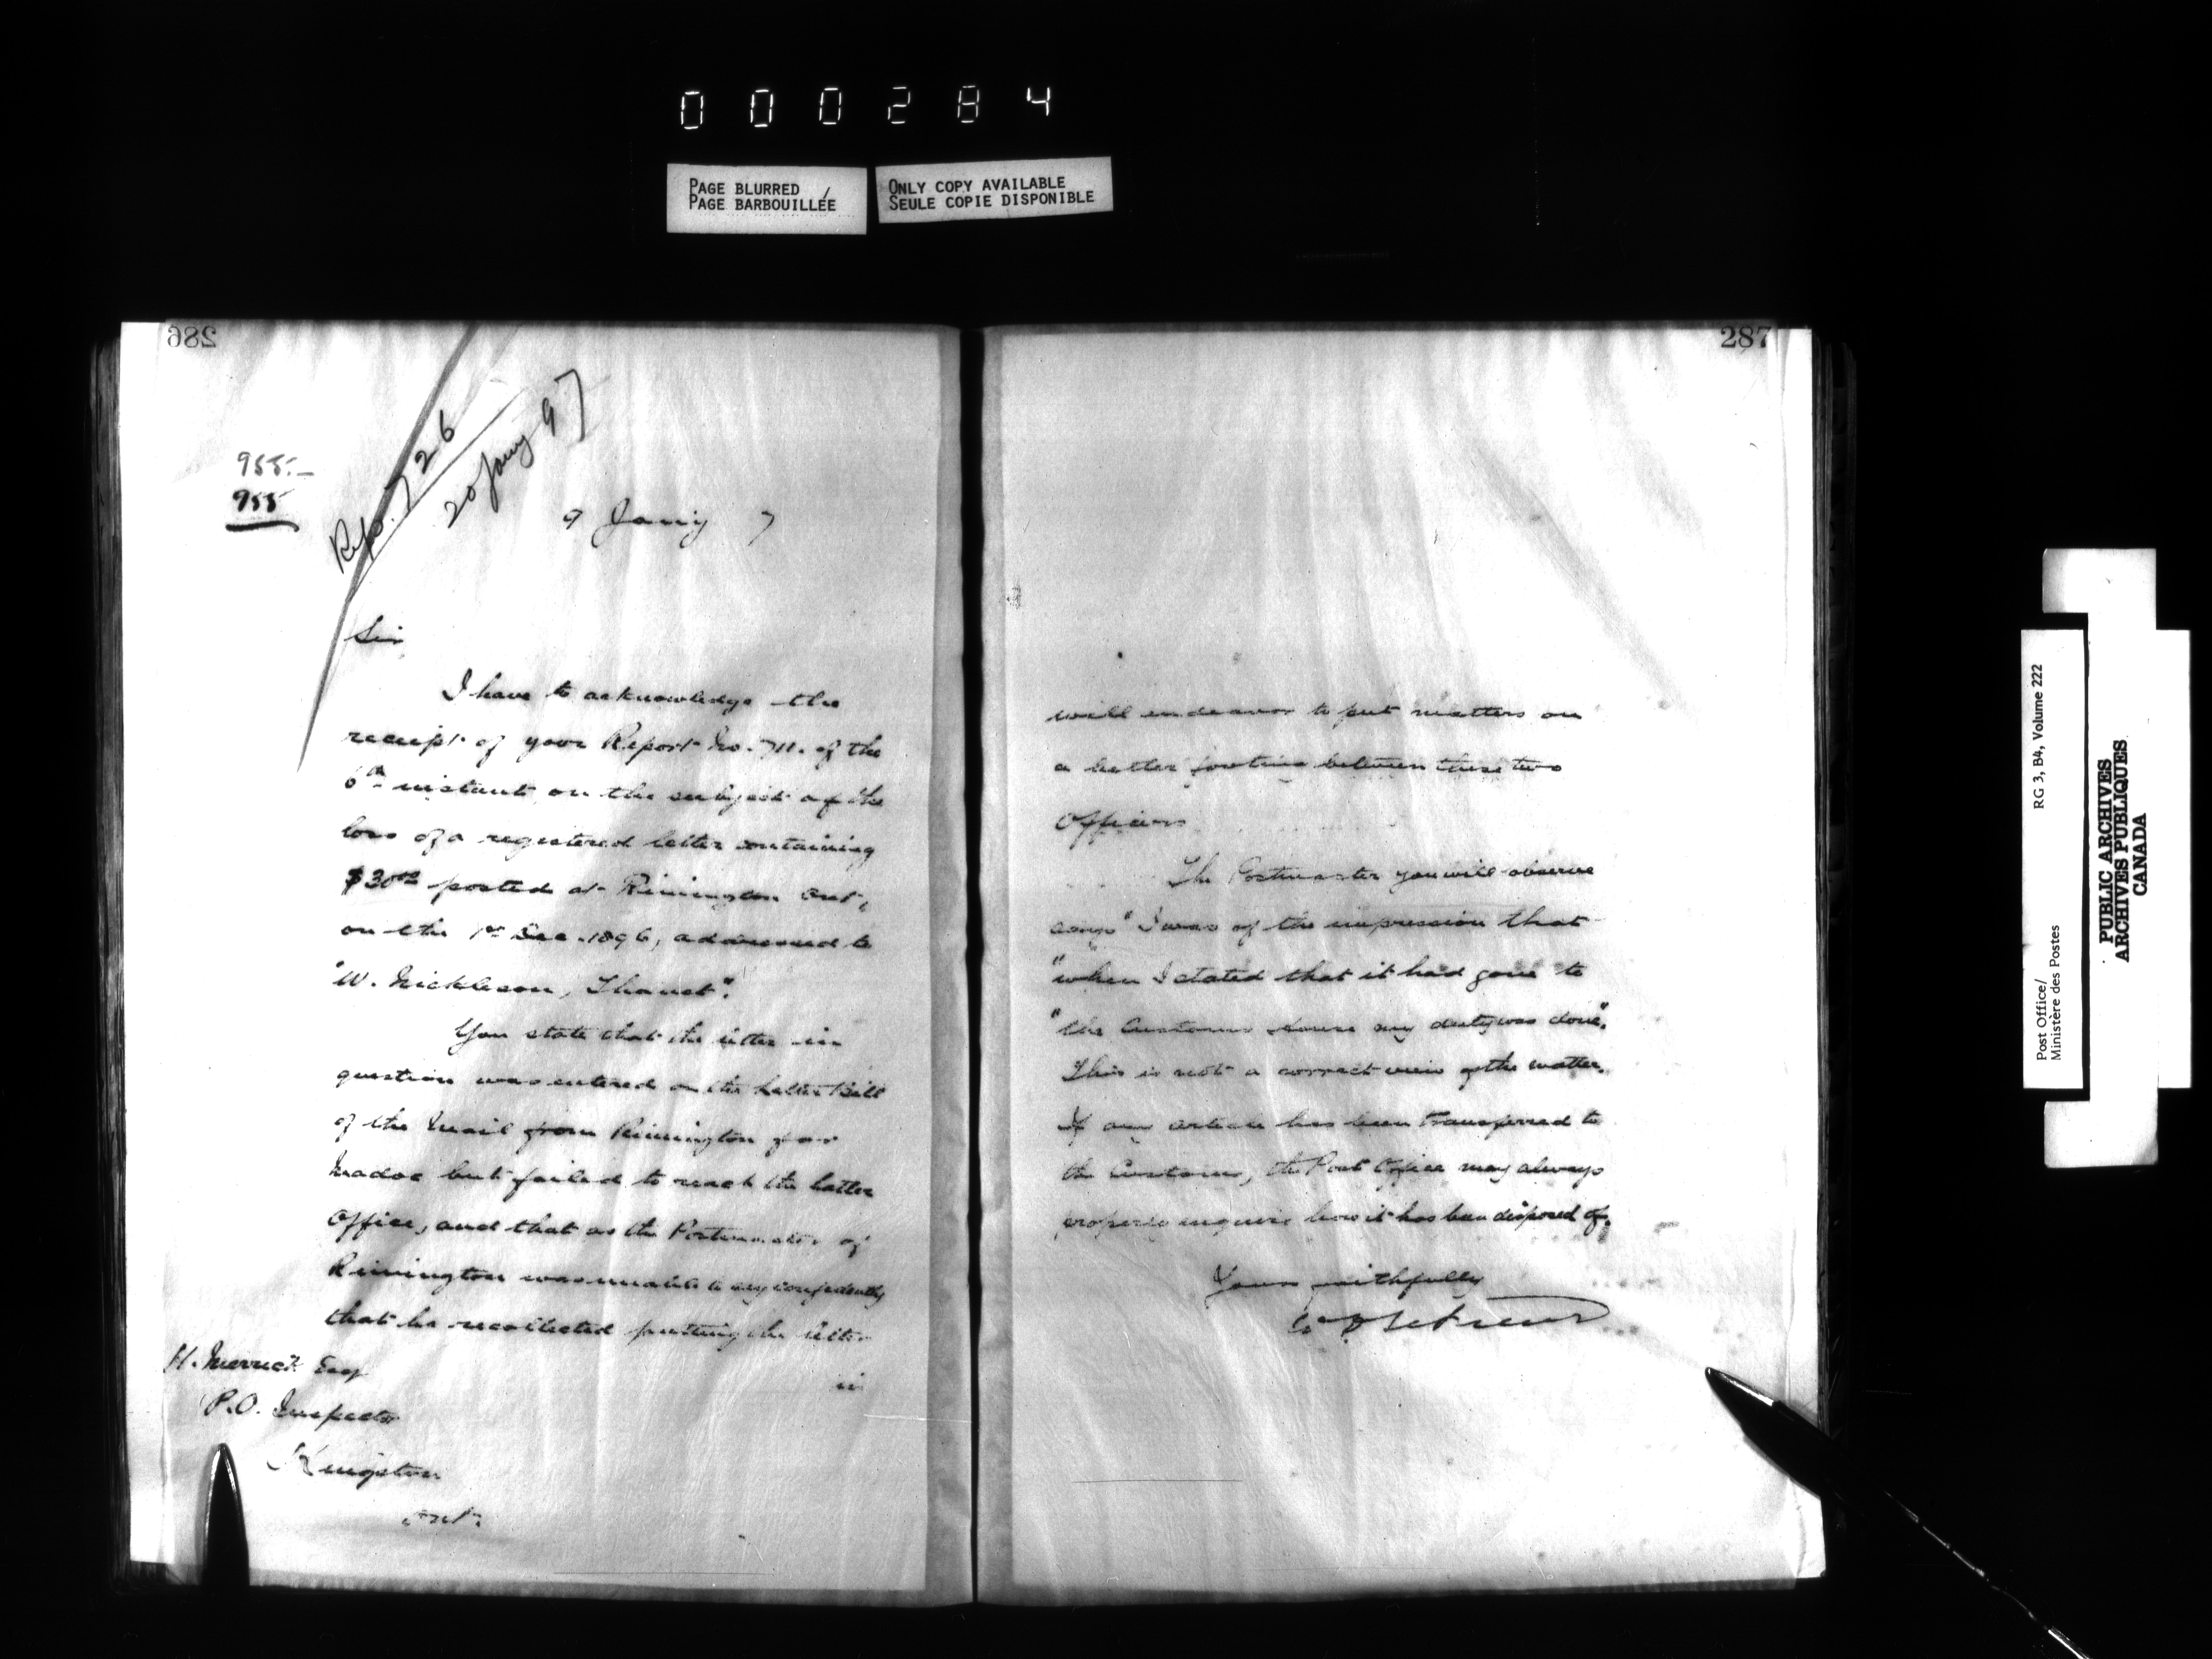 000284
PAGE BLURRED /
PAGE BARBOUILLÉE
ONLY COPY AVAILABLE
SEULE COPIE DISPONIBLE
286
955.–
955
Repo. 726
20 Jany 97
9 Jany 7
Sir
I have to acknowledge the
receipt of your Report No. 711. of the
6th instant, on the subject of the
loss of a registered letter containing
$30.00 posted at Rimington Ont,
on the 1st Dec. 1896, addressed to
"W. Nickleson, Thanet".
You state that the letter in
question was entered on the Letter Bill
of the Mail from Rimington for
Madoc but failed to reach the latter
Office, and that as the Postmaster of
Rimington was unable to say confidently
that he recollected putting the letter
in
H. Merrick Esq
P.O. Inspector
Kingston
Ont.
287
will endeavor to put matters on
a better footing between these two
Officers
The Postmaster you will observe
says "I was of the impression that
"when I stated that it had gone to
"the Customs House my duty was done".
This is not a correct view of the matter.
If an article has been transferred to
the Customs, the Post Office may always
properly enquire how it has been disposed of.
Yours faithfully
Post Office/
Ministère des Postes
RG 3, B4, Volume 222
PUBLIC ARCHIVES
ARCHIVES PUBLIQUES
CANADA